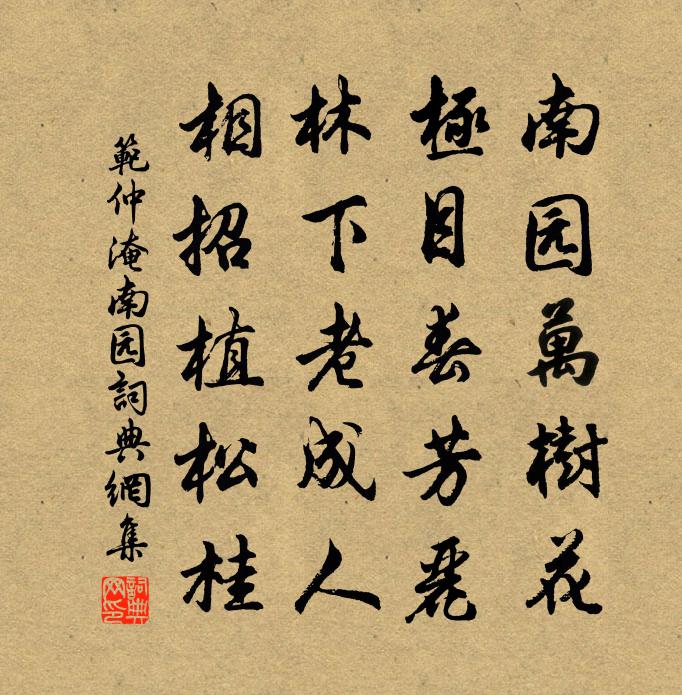 南园萬樹花
極目春芳麗
林下老成人
相招植松桂
範仲淹南园詞典網集
詞典网印